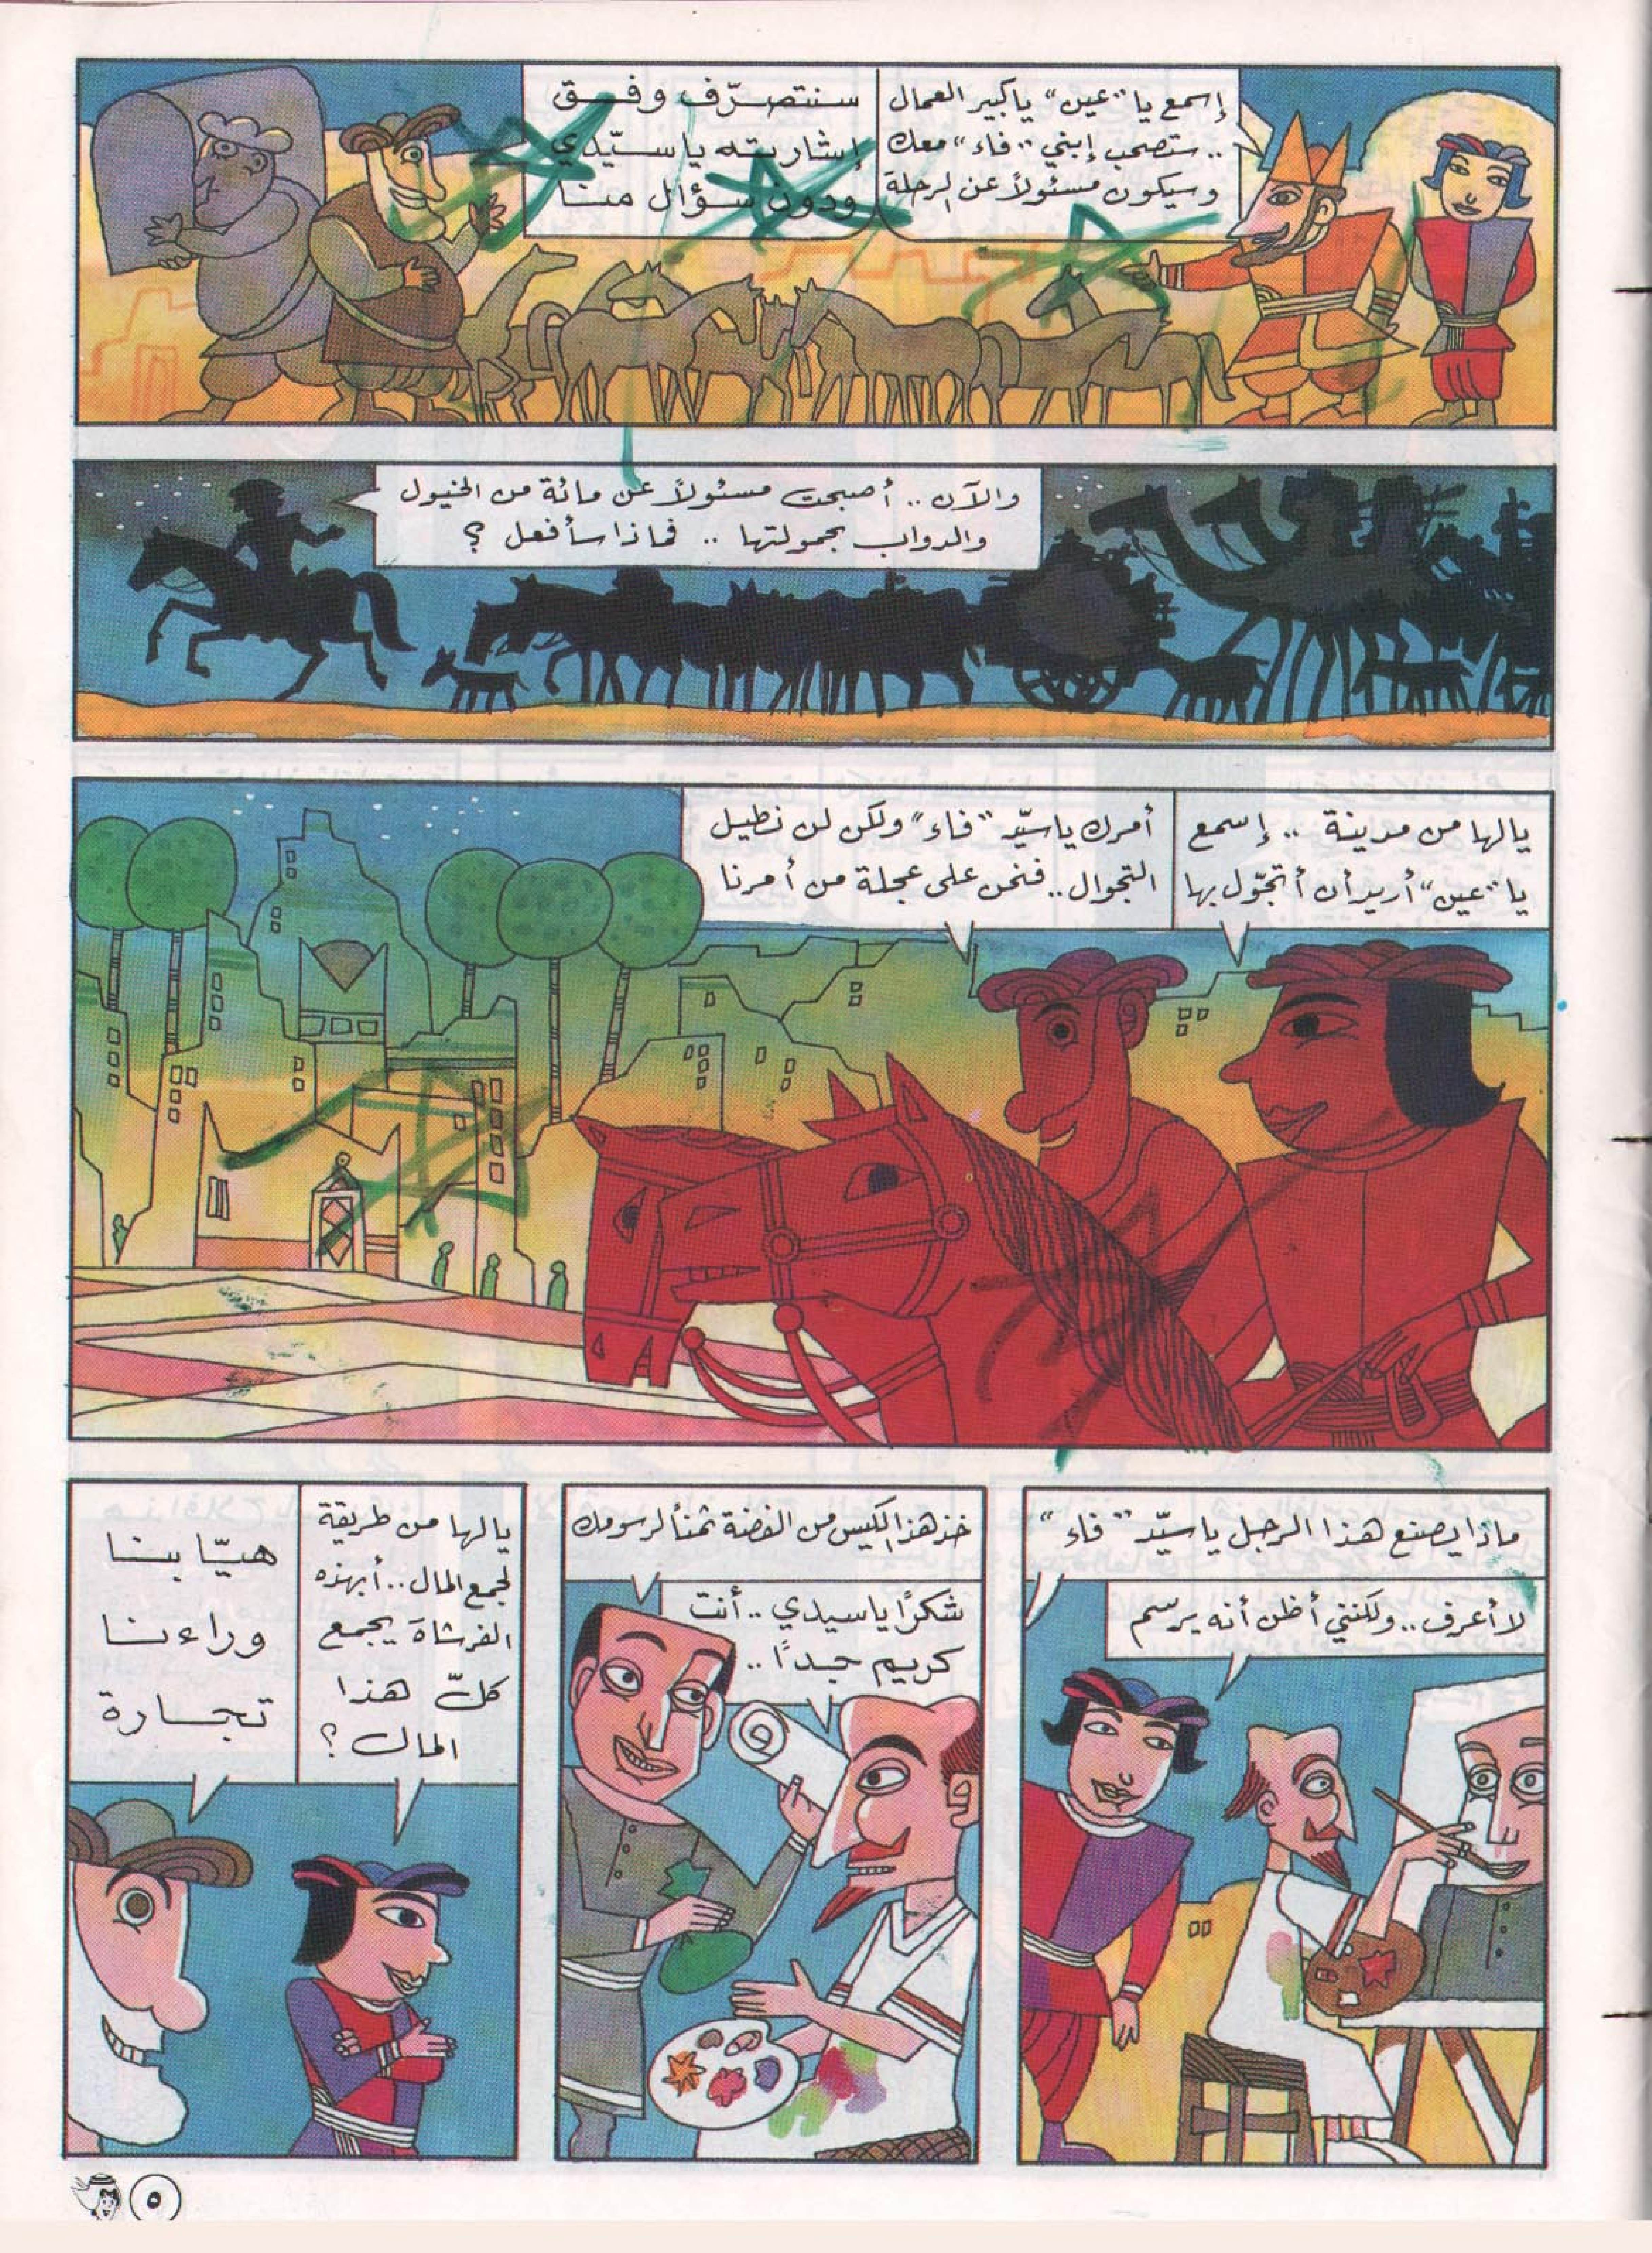 إسمع يا "عين" يا كبير العمال
.. ستصحب إبني "فاء" معك
وسيكون مسئولاً عن الرحلة
سنتصرّف وفق
إشارته يا سيّدي
ودون سؤال منا
والآن .. أصبحت مسئولاً عن مائة من الخيول
والدواب بحمولتها .. فماذا سأفعل ؟
يالها من مدينة .. إسمع
يا "عين" أريد أن أتجوّل بها
أمرك يا سيّد "فاء" ولكن لن نطيل
التجوال .. فنحن على عجلة من أمرنا
ماذا يصنع هذا الرجل يا سيّد "فاء"
لا أعرف .. ولكنني أظن أنه يرسم
خذ هذا الكيس من الفضة ثمناً لرسومك
شكرًا يا سيدي .. أنت
كريم جدًا ..
يالها من طريقة
لجمع المال .. أبهذه
الفرشاة يجمع
كلّ هذا
المال ؟
هيّا بنا
وراءنا
تجارة
٥